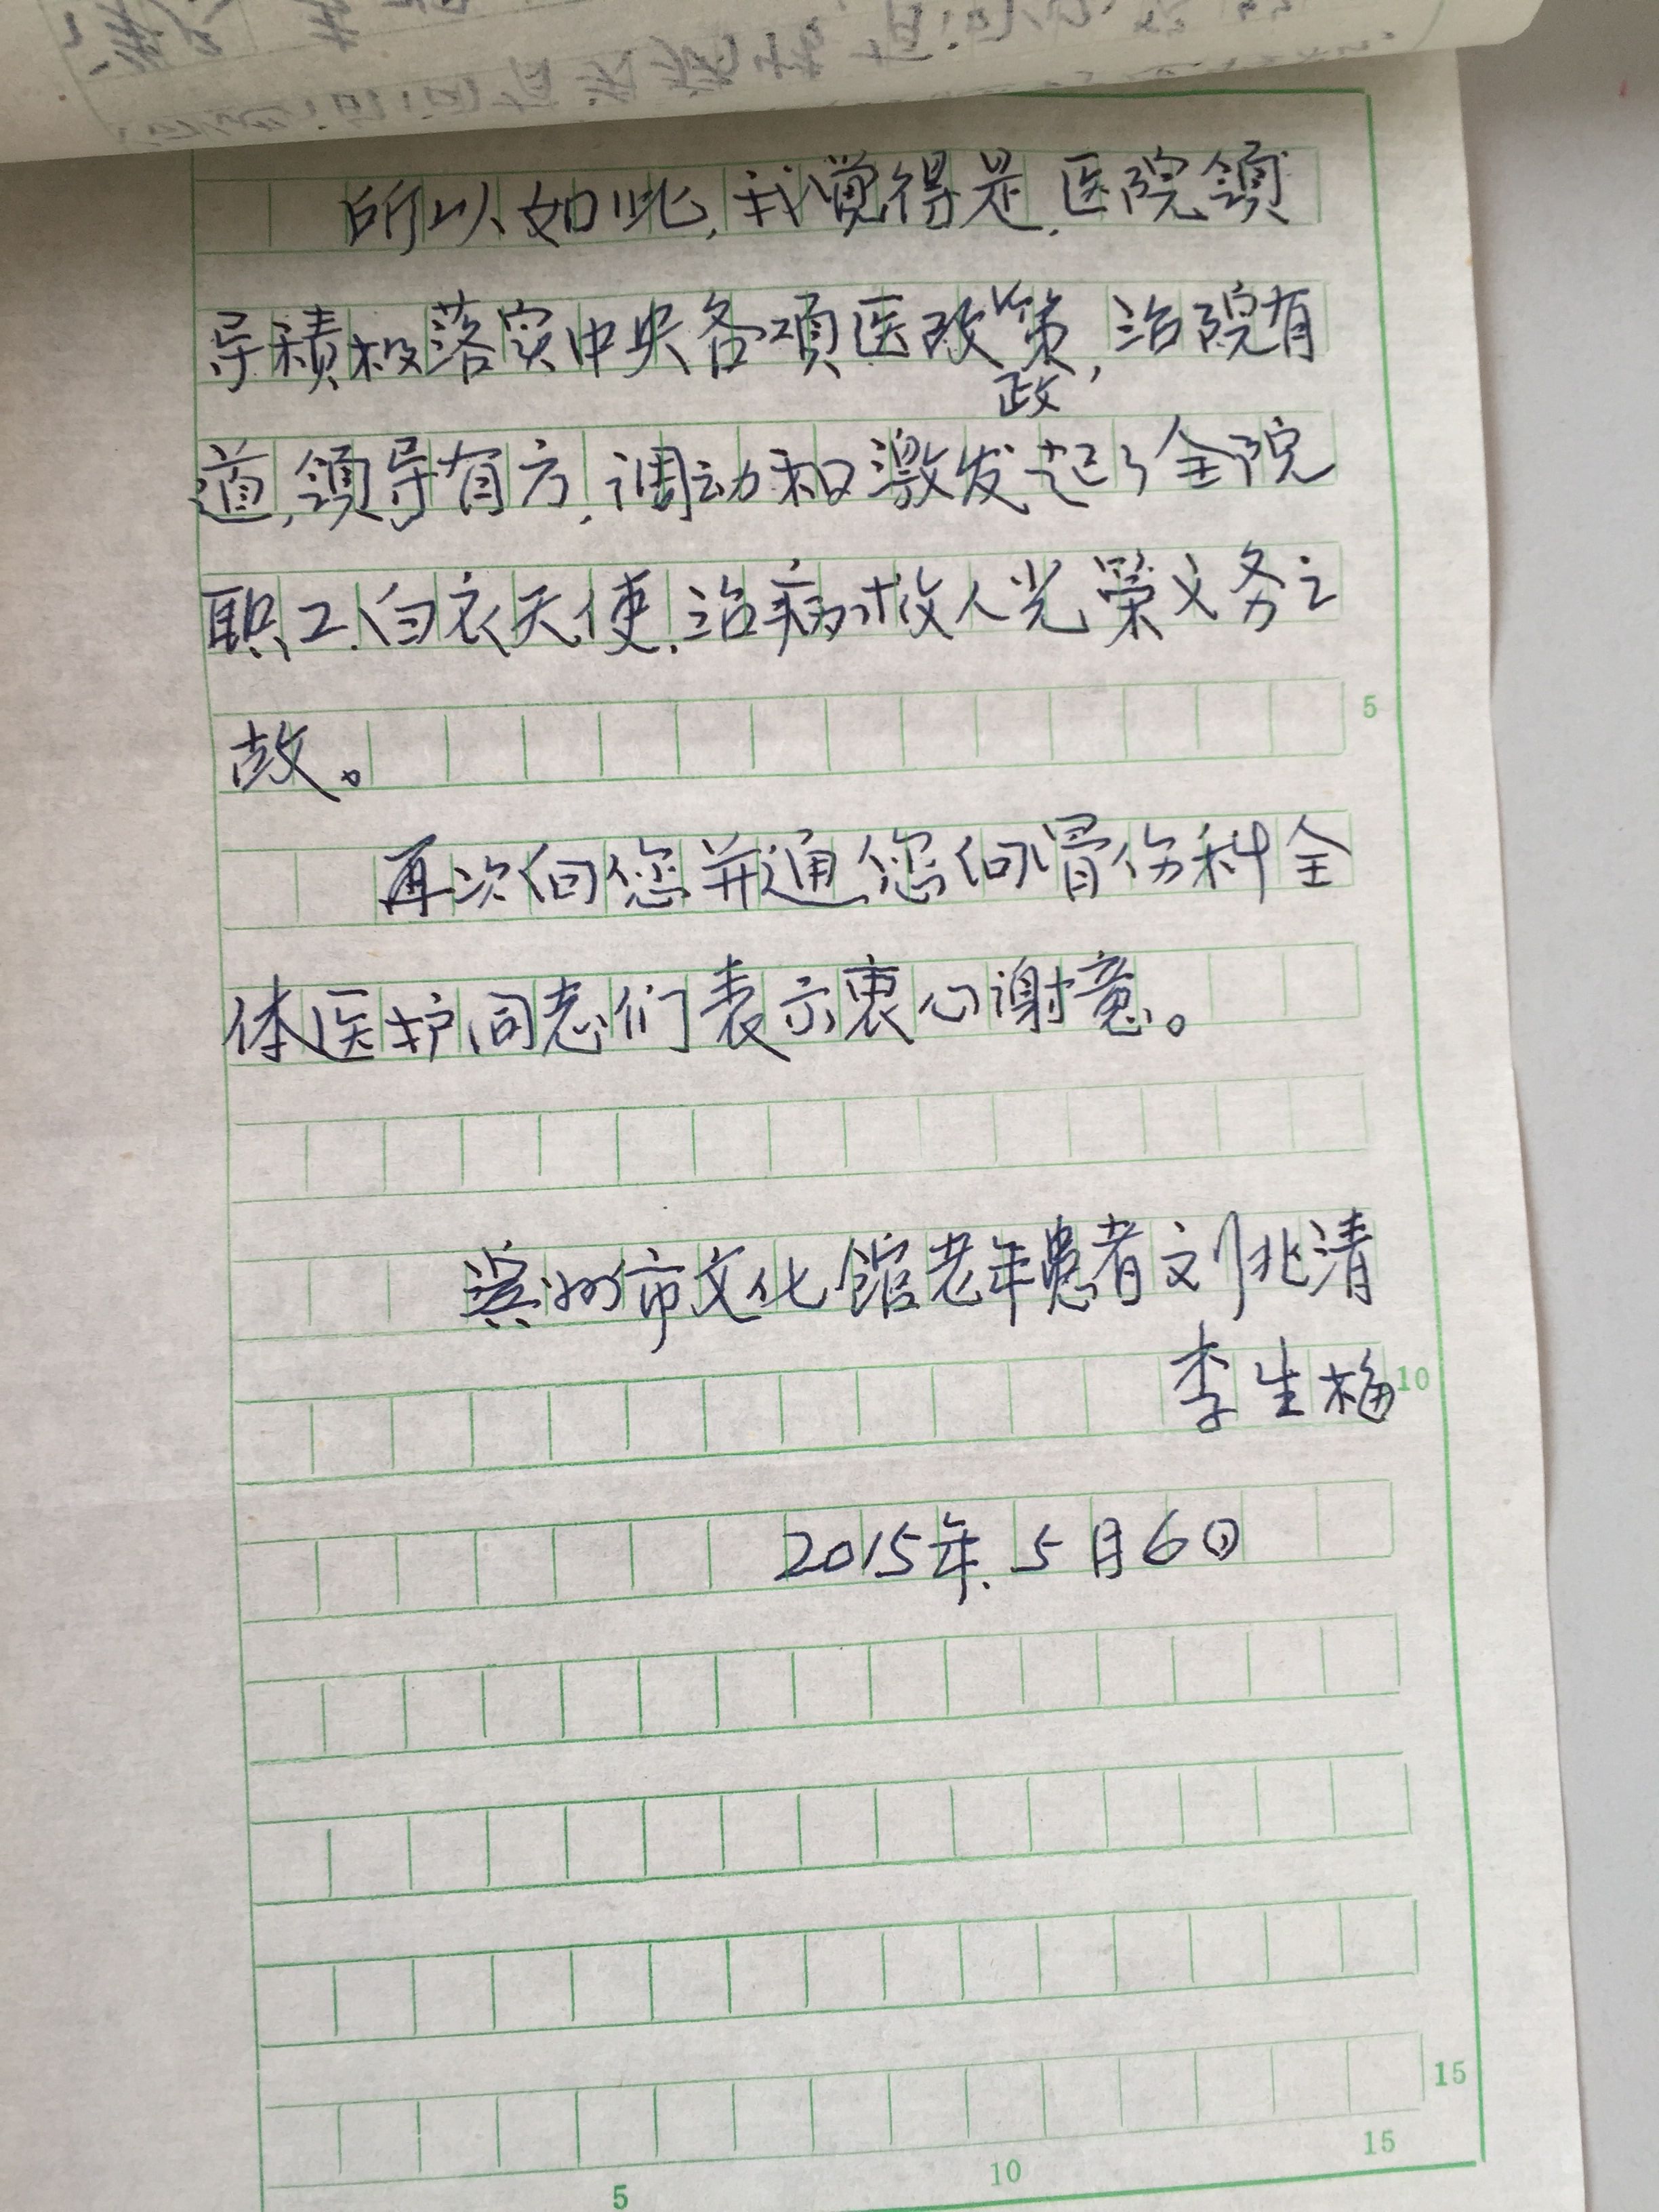 所以如此，我觉得是，医院领
导积极落实中央各项医改政策，治院有
道，领导有方，调动和激发起了全院
职工、白衣天使，治病救人光荣义务之
故。
5
再次向您并通您向骨伤科全
体医护同志们表示衷心谢意。
滨州市文化馆老年患者刘兆清
李生梅
10
2015年.5月6日
15
5 10 15